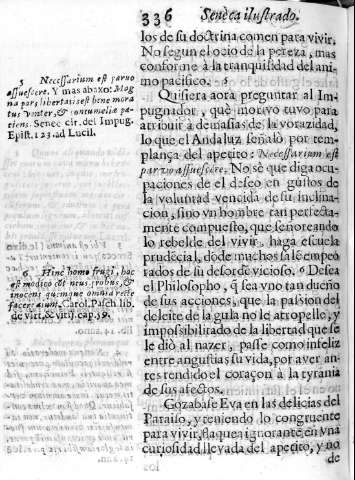 336 Seneca ilustrado.
los de su doctrina comen para vivir.
No segun el ocio de la pereza, mas
conforme à la tranquilidad del ani
mo pacifico.
Quisiera aora preguntar al Im-
pugnador, què motivo tuvo para
atribuir à demasias de la vorazidad,
lo que el Andaluz señalò por tem-
plança del apetito: Necessarium est
parvo assuescere. No sè que diga ocu-
paciones de el deseo en gustos de
la voluntad vencida de su inclina
cion, sino vn hombre tan perfecta-
mente compuesto, que señoreando
lo rebelde del vivir, haga escuela
prudẽcial, dõde muchos salẽ empeo
rados de su desordẽ vicioso. 6 Desea
el Philosopho, q̃ sea vno tan dueño
de sus acciones, que la passion del
deleite de la gula no le atropelle, y
impossibilitado de la libertad que se
le diò al nazer, passe como infeliz
entre angustias su vida, por aver an-
tes rendido el coraçon à la tyrania
de sus afectos.
Gozabase Eva en las delicias del
Paraiso, y teniendo lo congruente
para vivir, flaquea ignorante en vna
curiosidad llevada del apetito, y no
de
5 Necessarium est parvo
assuescere. Y mas abaxo: Mag
na pars libertatis est bene mora
tus venter, & contumeliæ pa-
tiens. Senec cit. del Impug.
Epist. 123. ad Lucil.
6 Hinc homo frugi, hoc
est modico cõtentus, probus, &
innocens, quemque omnia recte
facere aiunt, Carol. Pasch. lib.
de virt. & vitijs cap. 39.